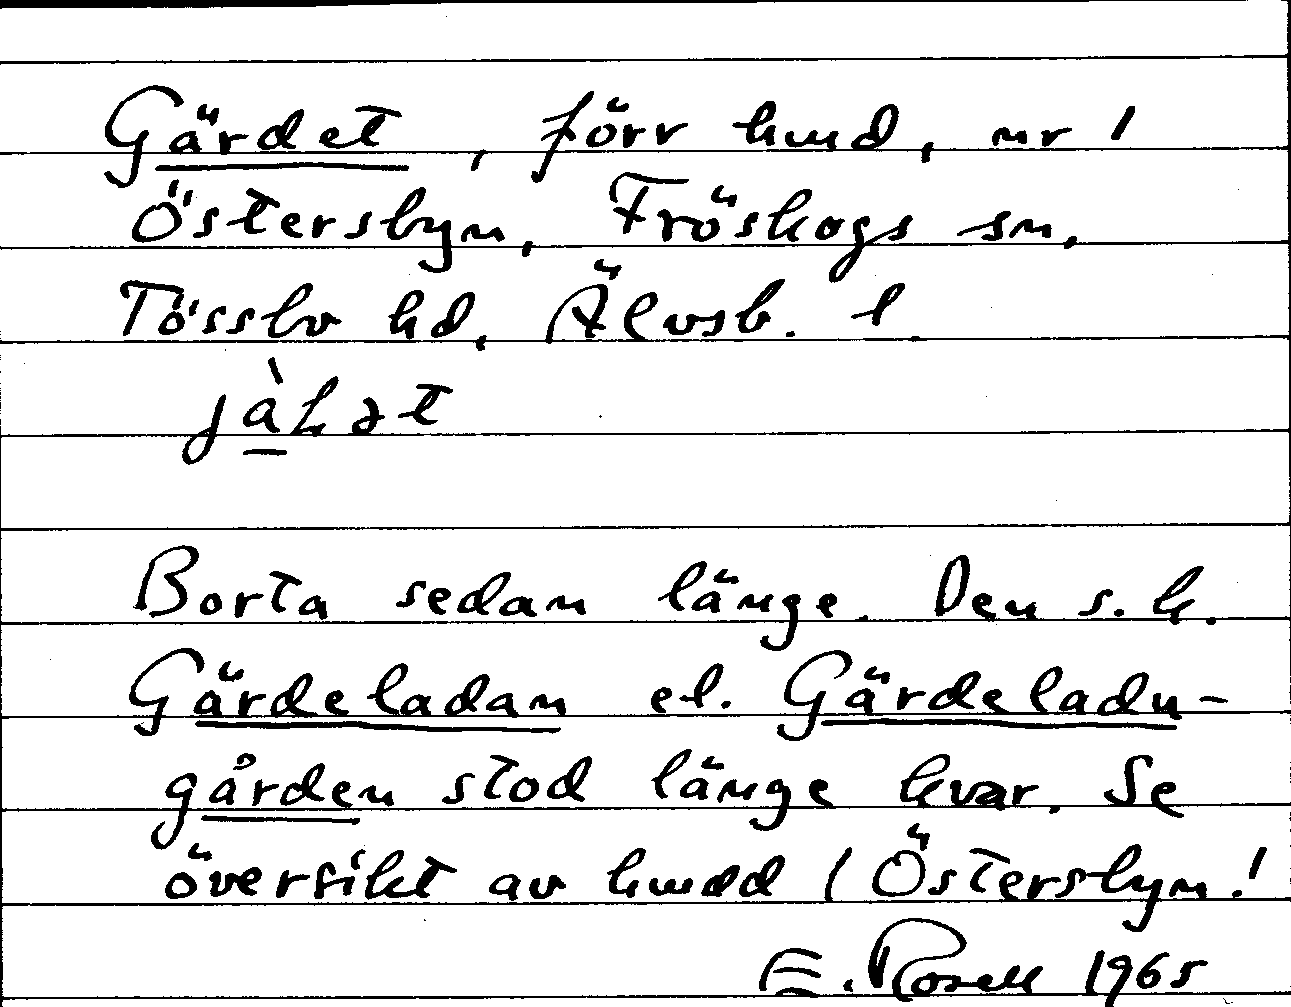 Gärdet, förr hmd, nr 1
Östersbyn, Fröskogs sn,
Tössbo hd, Älvsb. l
Borta sedan länge. Den s.k.
Gärdeladan el. Gärdeladu-
gården stod länge kvar. Se
översikt av hmdd i Östersbyn!
E. Rosell 1965